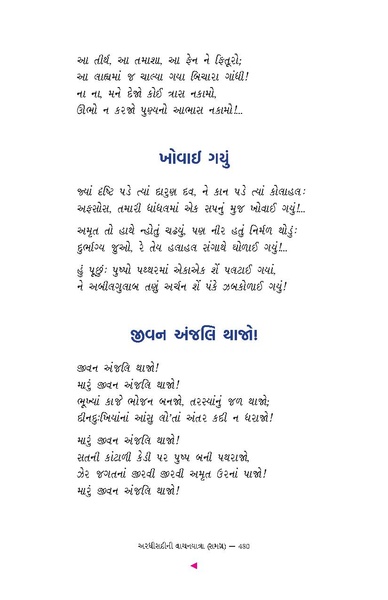 આ તીર્થ, આ તમાશા, આ ફેન ને ફિતૂરો;
આ લાહ્યમાં જ ચાલ્યા ગયા બિચારા ગાંધી!
ના ના, મને દેજો કોઈ ત્રાસ નકામો,
ઊભો ન કરજો પુણ્યનો આભાસ નકામો!..
ખોવાઈ ગયું
જ્યાં દૃષ્ટિ પડે ત્યાં દારુણ દવ, ને કાન પડે ત્યાં કોલાહલ:
અફસોસ, તમારી ધાંધલમાં એક સપનું મુજ ખોવાઈ ગયું!..
અમૃત તો હાથે ન્હોતું ચઢ્યું, પણ નીર હતું નિર્મળ થોડું:
દુર્ભાગ્ય જુઓ, રે તેય હલાહલ સંગાથે ઘોળાઈ ગયું!..
હું પૂછું: પુષ્પો પથ્થરમાં એકાએક શેં પલટાઈ ગયાં,
ને અબીલગુલાબ તણું અર્ચન શેં પંકે ઝબકોળાઈ ગયું!
જીવન અંજલિ થાજો!
જીવન અંજલિ થાજો!
મારું જીવન અંજલિ થાજો!
ભૂખ્યાં કાજે ભોજન બનજો, તરસ્યાંનું જળ થાજો;
દીનદુ:ખિયાંનાં આંસુ લો'તાં અંતર કદી ન ધરાજો!
મારું જીવન અંજલિ થાજો!
સતની કાંટાળી કેડી પર પુષ્પ બની પથરાજો,
ઝેર જગતનાં જીરવી જીરવી અમૃત ઉરનાં પાજો!
મારું જીવન અંજલિ થાજો!
અરધી સદીની વાચનયાત્રા (સમગ્ર) — 480